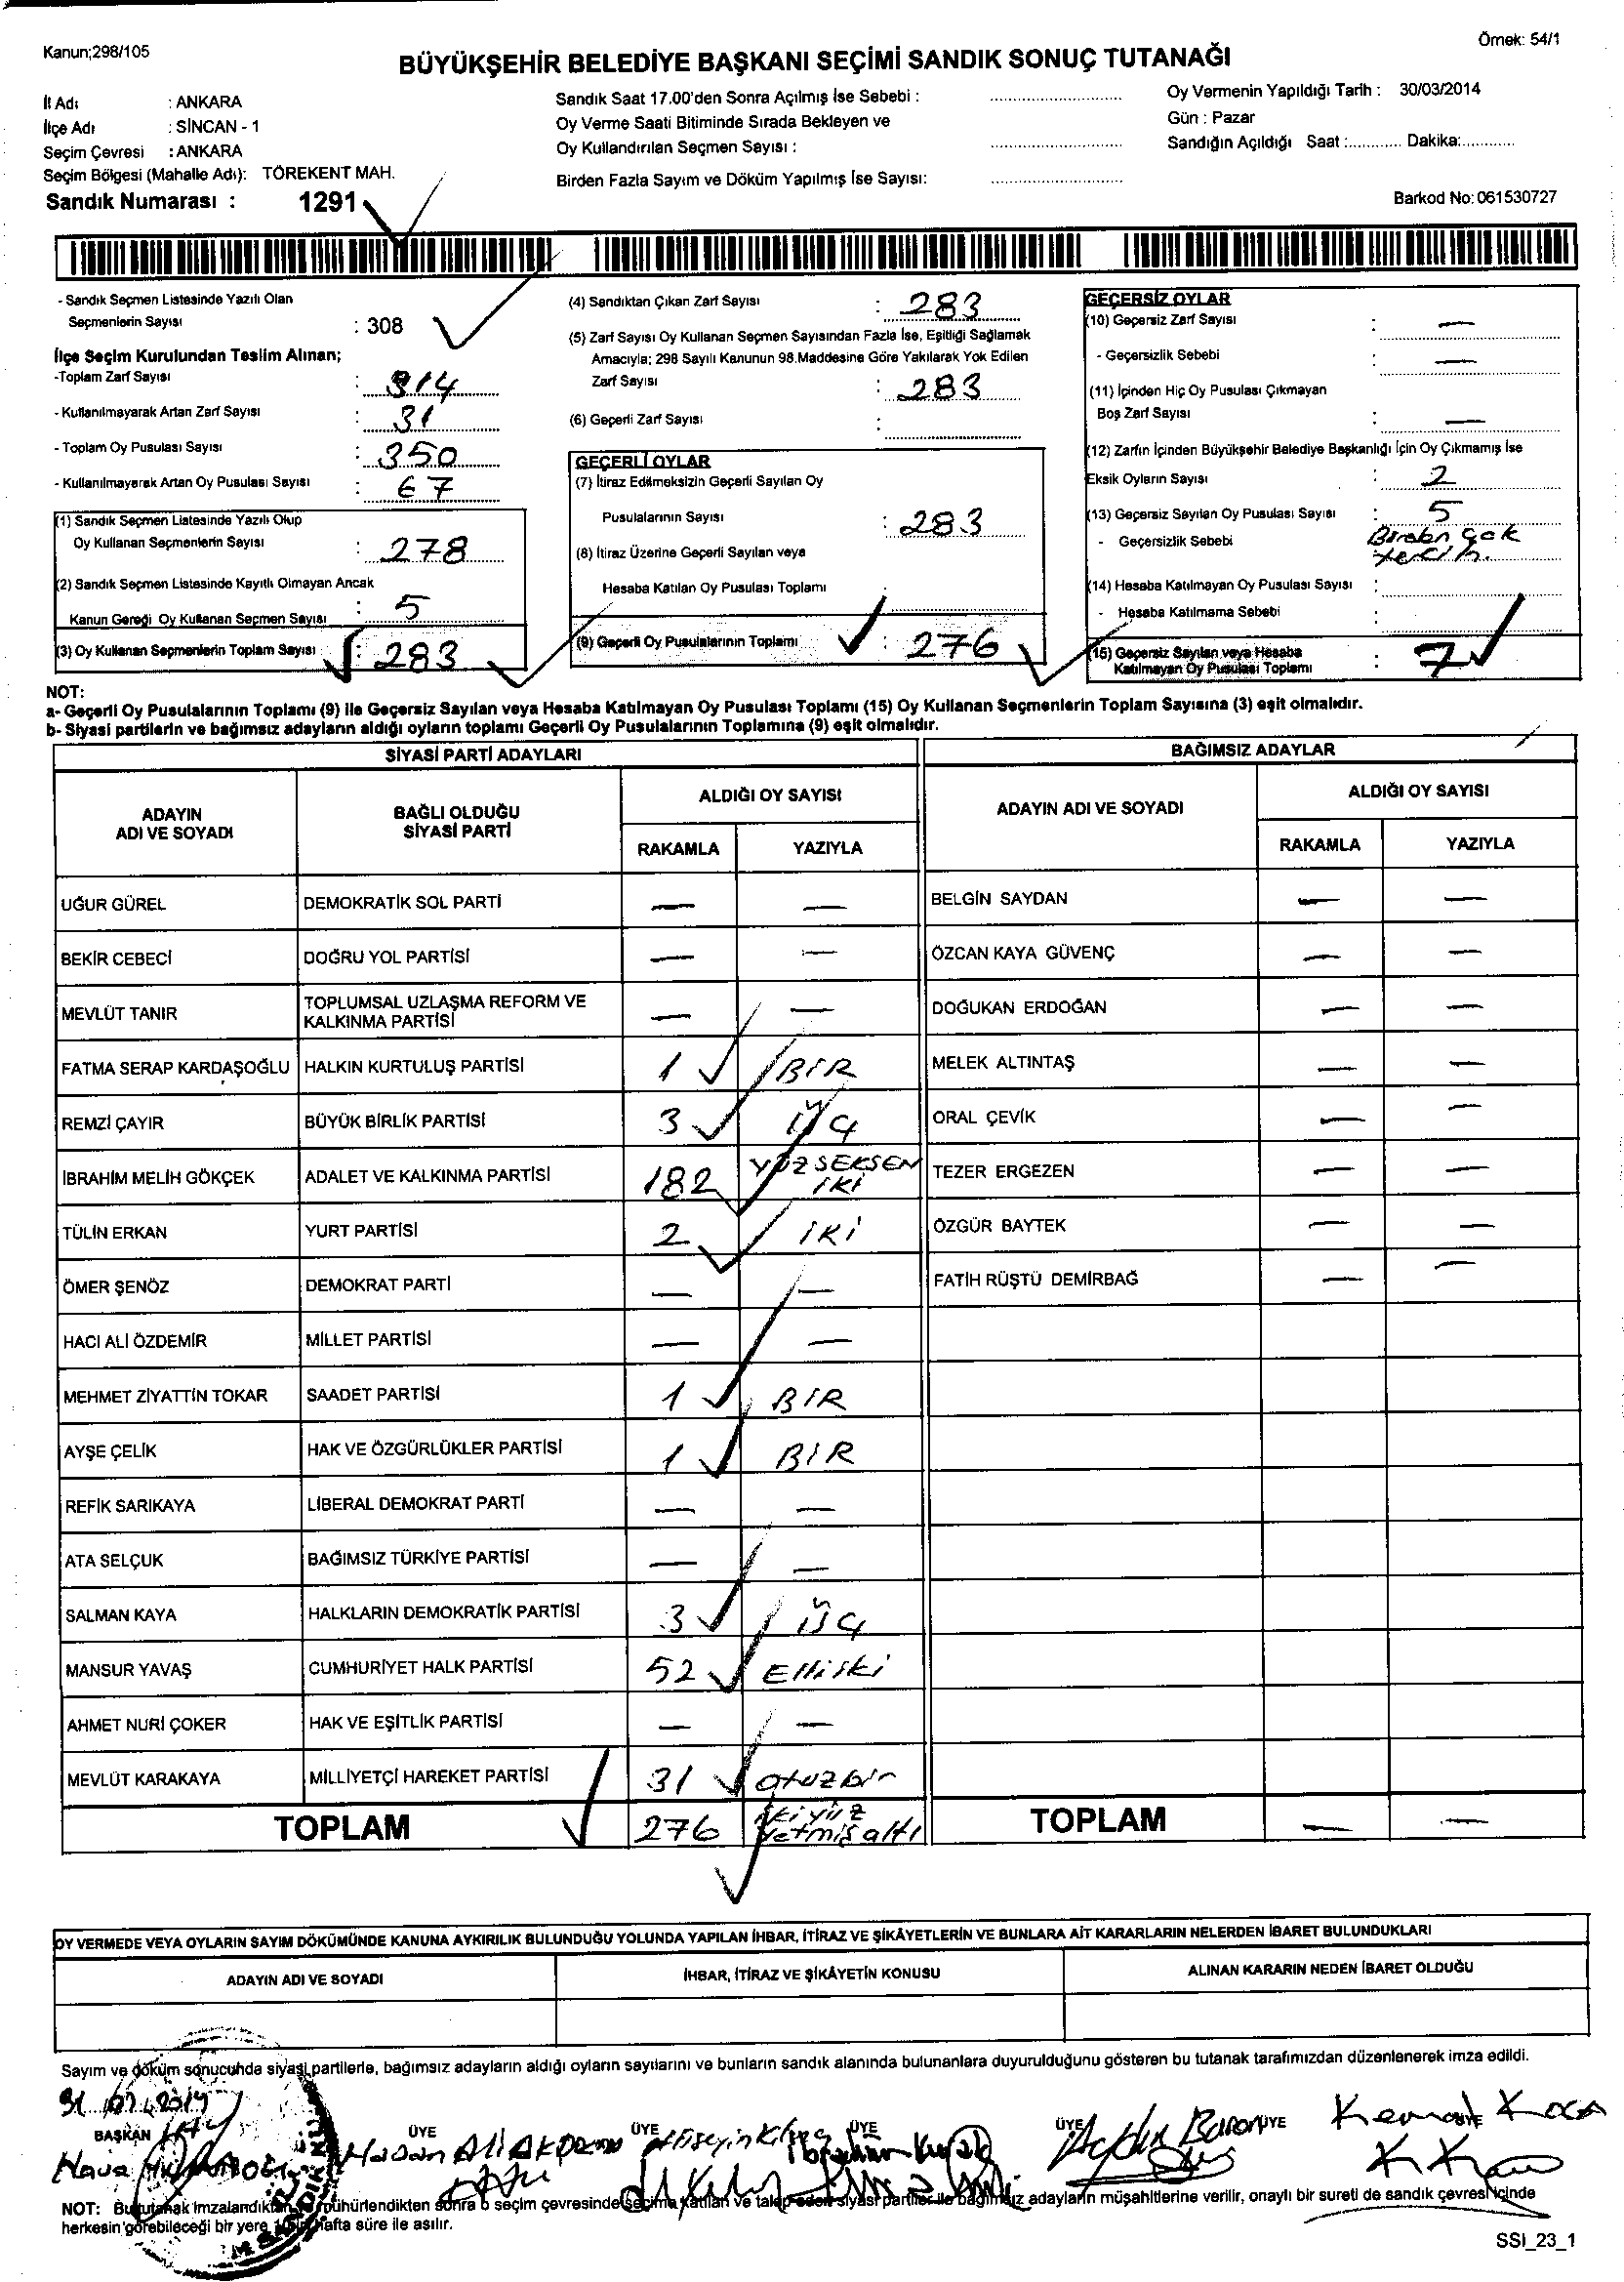 Kanun;298/105
Örnek: 54/1
BÜYÜKŞEHİR BELEDİYE BAŞKANI SEÇİMİ SANDIK SONUÇ TUTANAĞI
İl Adı : ANKARA
İlçe Adı : SİNCAN - 1
Seçim Çevresi : ANKARA
Seçim Bölgesi (Mahalle Adı): TÖREKENT MAH.
Sandık Numarası : 1291
Sandık Saat 17.00'den Sonra Açılmış İse Sebebi :
Oy Verme Saati Bitiminde Sırada Bekleyen ve
Oy Kullandırılan Seçmen Sayısı :
Birden Fazla Sayım ve Döküm Yapılmış İse Sayısı:
Oy Vermenin Yapıldığı Tarih : 30/03/2014
Gün : Pazar
Sandığın Açıldığı Saat :............ Dakika:............
Barkod No: 061530727
- Sandık Seçmen Listesinde Yazılı Olan
Seçmenlerin Sayısı : 308
İlçe Seçim Kurulundan Teslim Alınan;
-Toplam Zarf Sayısı : 314
- Kullanılmayarak Artan Zarf Sayısı : 31
- Toplam Oy Pusulası Sayısı : 350
- Kullanılmayarak Artan Oy Pusulası Sayısı : 67
(1) Sandık Seçmen Listesinde Yazılı Olup
Oy Kullanan Seçmenlerin Sayısı : 278
(2) Sandık Seçmen Listesinde Kayıtlı Olmayan Ancak
Kanun Gereği Oy Kullanan Seçmen Sayısı : 5
(3) Oy Kullanan Seçmenlerin Toplam Sayısı : 283
(4) Sandıktan Çıkan Zarf Sayısı : 283
(5) Zarf Sayısı Oy Kullanan Seçmen Sayısından Fazla İse, Eşitliği Sağlamak
Amacıyla; 298 Sayılı Kanunun 98.Maddesine Göre Yakılarak Yok Edilen
Zarf Sayısı : 283
(6) Geçerli Zarf Sayısı :
GEÇERLİ OYLAR
(7) İtiraz Edilmeksizin Geçerli Sayılan Oy
Pusulalarının Sayısı : 283
(8) İtiraz Üzerine Geçerli Sayılan veya
Hesaba Katılan Oy Pusulası Toplamı :
(9) Geçerli Oy Pusulalarının Toplamı : 276
GEÇERSİZ OYLAR
(10) Geçersiz Zarf Sayısı : —
- Geçersizlik Sebebi : —
(11) İçinden Hiç Oy Pusulası Çıkmayan
Boş Zarf Sayısı : —
(12) Zarfın İçinden Büyükşehir Belediye Başkanlığı İçin Oy Çıkmamış İse
Eksik Oyların Sayısı : 2
(13) Geçersiz Sayılan Oy Pusulası Sayısı : 5
- Geçersizlik Sebebi : Birden çok
tercih.
(14) Hesaba Katılmayan Oy Pusulası Sayısı :
- Hesaba Katılmama Sebebi :
(15) Geçersiz Sayılan veya Hesaba
Katılmayan Oy Pusulası Toplamı : 7
NOT:
a- Geçerli Oy Pusulalarının Toplamı (9) ile Geçersiz Sayılan veya Hesaba Katılmayan Oy Pusulası Toplamı (15) Oy Kullanan Seçmenlerin Toplam Sayısına (3) eşit olmalıdır.
b- Siyasi partilerin ve bağımsız adayların aldığı oyların toplamı Geçerli Oy Pusulalarının Toplamına (9) eşit olmalıdır.
SİYASİ PARTİ ADAYLARI
ADAYIN ADI VE SOYADI
BAĞLI OLDUĞU SİYASİ PARTİ
ALDIĞI OY SAYISI
RAKAMLA YAZIYLA
UĞUR GÜREL DEMOKRATİK SOL PARTİ — —
BEKİR CEBECİ DOĞRU YOL PARTİSİ — —
MEVLÜT TANIR TOPLUMSAL UZLAŞMA REFORM VE KALKINMA PARTİSİ — —
FATMA SERAP KARDAŞOĞLU HALKIN KURTULUŞ PARTİSİ 1 BİR
REMZİ ÇAYIR BÜYÜK BİRLİK PARTİSİ 3 ÜÇ
İBRAHİM MELİH GÖKÇEK ADALET VE KALKINMA PARTİSİ 182 YÜZ SEKSEN İKİ
TÜLİN ERKAN YURT PARTİSİ 2 İKİ
ÖMER ŞENÖZ DEMOKRAT PARTİ — —
HACI ALİ ÖZDEMİR MİLLET PARTİSİ — —
MEHMET ZİYATTİN TOKAR SAADET PARTİSİ 1 BİR
AYŞE ÇELİK HAK VE ÖZGÜRLÜKLER PARTİSİ 1 BİR
REFİK SARIKAYA LİBERAL DEMOKRAT PARTİ — —
ATA SELÇUK BAĞIMSIZ TÜRKİYE PARTİSİ — —
SALMAN KAYA HALKLARIN DEMOKRATİK PARTİSİ 3 ÜÇ
MANSUR YAVAŞ CUMHURİYET HALK PARTİSİ 52 Elliiki
AHMET NURİ ÇOKER HAK VE EŞİTLİK PARTİSİ — —
MEVLÜT KARAKAYA MİLLİYETÇİ HAREKET PARTİSİ 31 otuzbir
TOPLAM 276 ikiyüz yetmiş altı
BAĞIMSIZ ADAYLAR
ADAYIN ADI VE SOYADI
ALDIĞI OY SAYISI
RAKAMLA YAZIYLA
BELGİN SAYDAN — —
ÖZCAN KAYA GÜVENÇ — —
DOĞUKAN ERDOĞAN — —
MELEK ALTINTAŞ — —
ORAL ÇEVİK — —
TEZER ERGEZEN — —
ÖZGÜR BAYTEK — —
FATİH RÜŞTÜ DEMİRBAĞ — —
TOPLAM — —
OY VERMEDE VEYA OYLARIN SAYIM DÖKÜMÜNDE KANUNA AYKIRILIK BULUNDUĞU YOLUNDA YAPILAN İHBAR, İTİRAZ VE ŞİKÂYETLERİN VE BUNLARA AİT KARARLARIN NELERDEN İBARET BULUNDUKLARI
ADAYIN ADI VE SOYADI
İHBAR, İTİRAZ VE ŞİKÂYETİN KONUSU
ALINAN KARARIN NEDEN İBARET OLDUĞU
Sayım ve döküm sonucunda siyasi partilerle, bağımsız adayların aldığı oyların sayılarını ve bunların sandık alanında bulunanlara duyurulduğunu gösteren bu tutanak tarafımızdan düzenlenerek imza edildi.
BAŞKAN ÜYE ÜYE ÜYE ÜYE ÜYE
Hava
Hasan Ali
Hüseyin
İbrahim
Aydın
Kemal Koca
NOT: Bu tutanak imzalandıktan ve mühürlendikten sonra o seçim çevresinde seçime katılan ve talep eden siyasi partiler ile bağımsız adayların müşahitlerine verilir, onaylı bir sureti de sandık çevresi içinde
herkesin görebileceği bir yere hafta süre ile asılır.
SSI_23_1